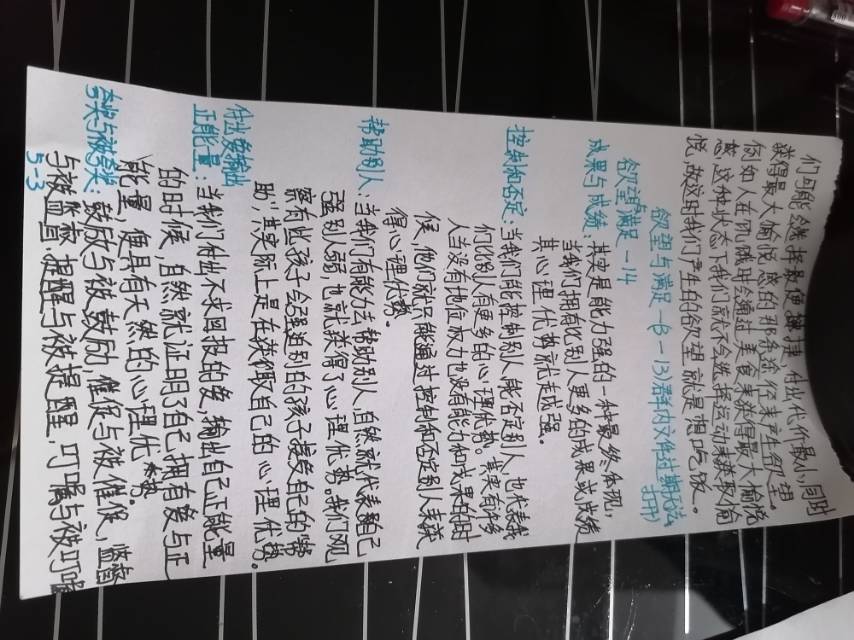 们可能会选择最便捷、付出代价最小，同时
获得最大愉悦感的那条途径来产生欲望。
例如人在饥饿时会通过美食来获得最大愉悦
感，这种状态下我们就不会选择运动来获取愉
悦，故这时我们产生的欲望就是想吃饭。
欲望与满足-B-13)群内文件过期无法
打开)
欲望满足-14
成果与成绩：其实是能力强的一种最终体现，
当我们拥有比别人更多的成果或成绩
其心理优势就走越强。
控制和否定：当我们能控制别人，能否定别人，也代表我
们比别人有更多的心理优势。其实有许多
人当没有地位权力也没有能力和成果的时
候，他们就只能通过控制和否定别人来获
得心理优势。
帮助别人：当我们有能力去帮助别人，自然就代表自己
强别人弱，也就获得了心理优势。我们观
察有些孩子会强迫别的孩子接受自己的“帮
助”，其实际上是在获取自己的心理优势。
付出爱输出
正能量：当我们付出不求回报的爱，输出自己正能量
的时候，自然就证明了自己拥有爱与正
能量，便具有天然的心理优势。
夸奖与被夸奖：鼓励与被鼓励，催促与被催促，监督
与被监督，提醒与被提醒，叮嘱与被叮嘱
5-3